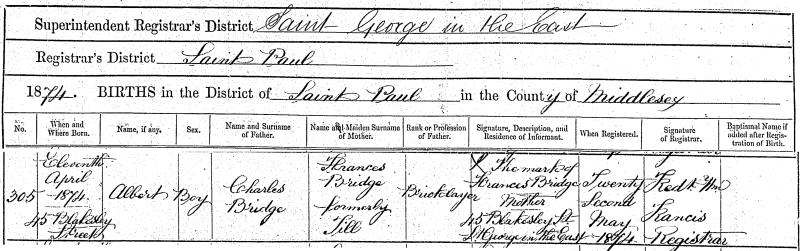 Superintendent Registrar's District Saint George in the East
Registrar's District Saint Paul
1874. BIRTHS in the District of Saint Paul in the County of Middlesex
No.
When and
Where Born.
Name, if any.
Sex.
Name and Surname
of Father.
Name and Maiden Surname
of Mother.
Rank or Profession
of Father.
Signature, Description, and
Residence of Informant.
When Registered.
Signature
of Registrar.
Baptismal Name if
added after Regis-
tration of Birth.
305
Eleventh
April
1874
45 Blakesley
Street
Albert
Boy
Charles
Bridge
Frances
Bridge
formerly
Sill
Bricklayer
X The mark of
Frances Bridge
Mother
45 Blakesley St
St George in the East
Twenty
Second
May
1874
Fredk Wm
Francis
Registrar